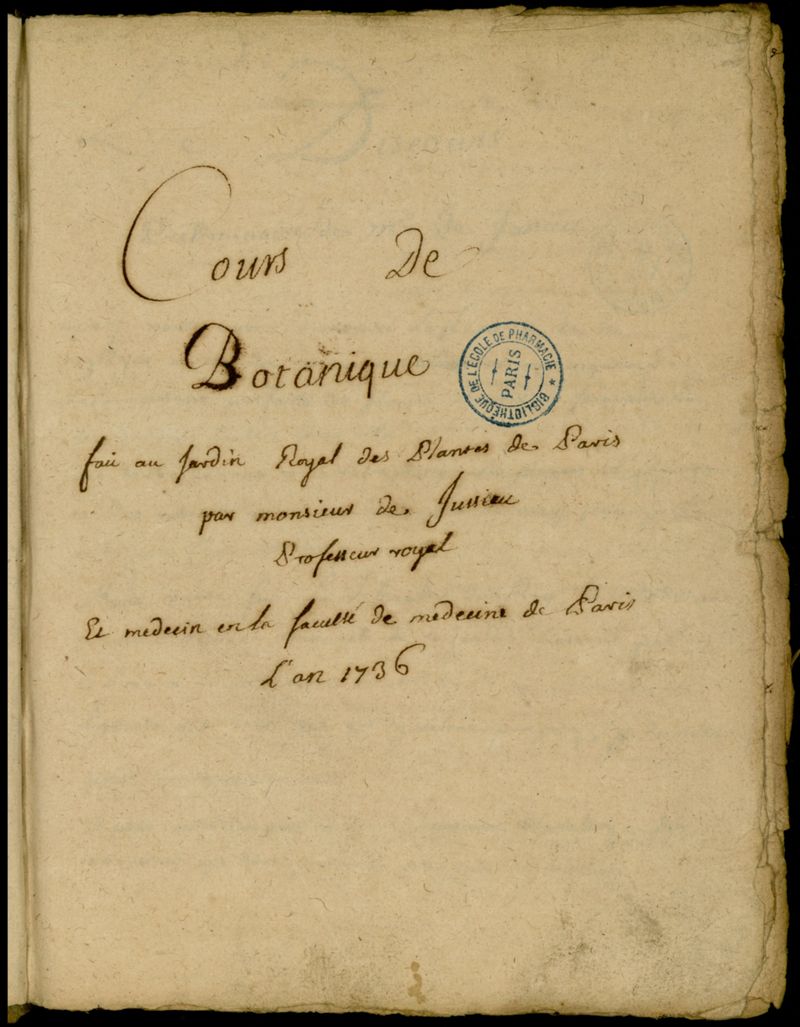 Cours De
Botanique
BIBLIOTHÈQUE DE L'ÉCOLE DE PHARMACIE
PARIS
fait au Jardin Royal des Plantes de Paris
par monsieur de Jussieu
Professeur royal
Et medecin en la faculté de medecine de Paris
L'an 1736